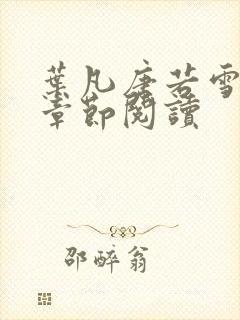 葉凡唐若雪
章節閱讀
邵醉翁